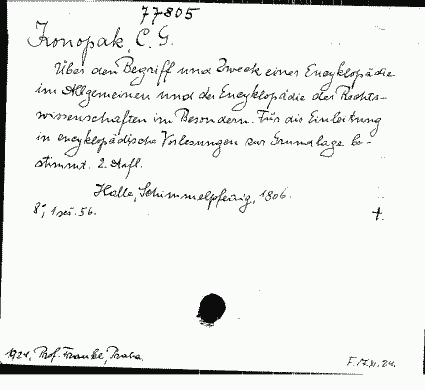 77805
Konopak, C. G.
Über den Begriff und Zweck einer Encyklopädie
im Allgemeinen und der Encyklopädie der Rechts-
wissenschaften im Besondern. Für die Einleitung
in encyklopädische Vorlesungen zur Grundlage be-
stimmt. 2. Aufl.
Halle, Schimmelpfennig, 1806.
8°, 56.
1921, Prof. Franke, Praha.